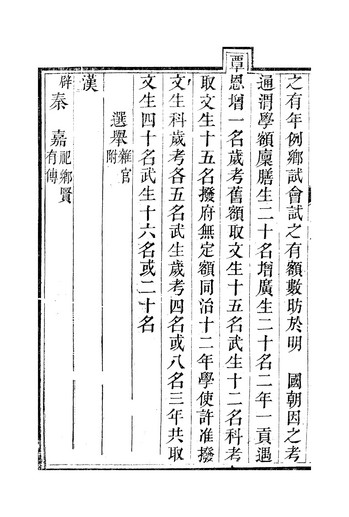 之有年例鄉試會試之有額數昉於明　國朝因之考
通渭學額廩膳生二十名增廣生二十名二年一貢遇
覃恩增一名歲考舊額取文生十五名武生十二名科考
取文生十五名撥府無定額同治十二年學使許准撥
文生科歲考各五名武生歲考四名或八名三年共取
文生四十名武生十六名或二十名
選舉雜官附
漢
辟秦　嘉祀鄉賢有傳